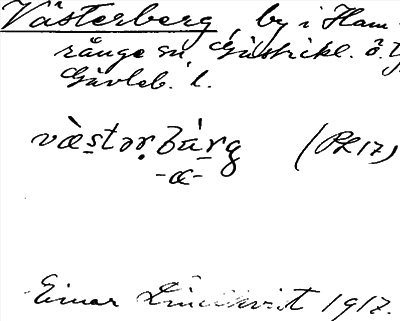 Västerberg, by i Ham-
rånge sn, Gästrikl. ö. 
Gävleb. l.
væ̀stər̥bár̠g (PL 17)
-æ-
Einar Lindkvist 1917.